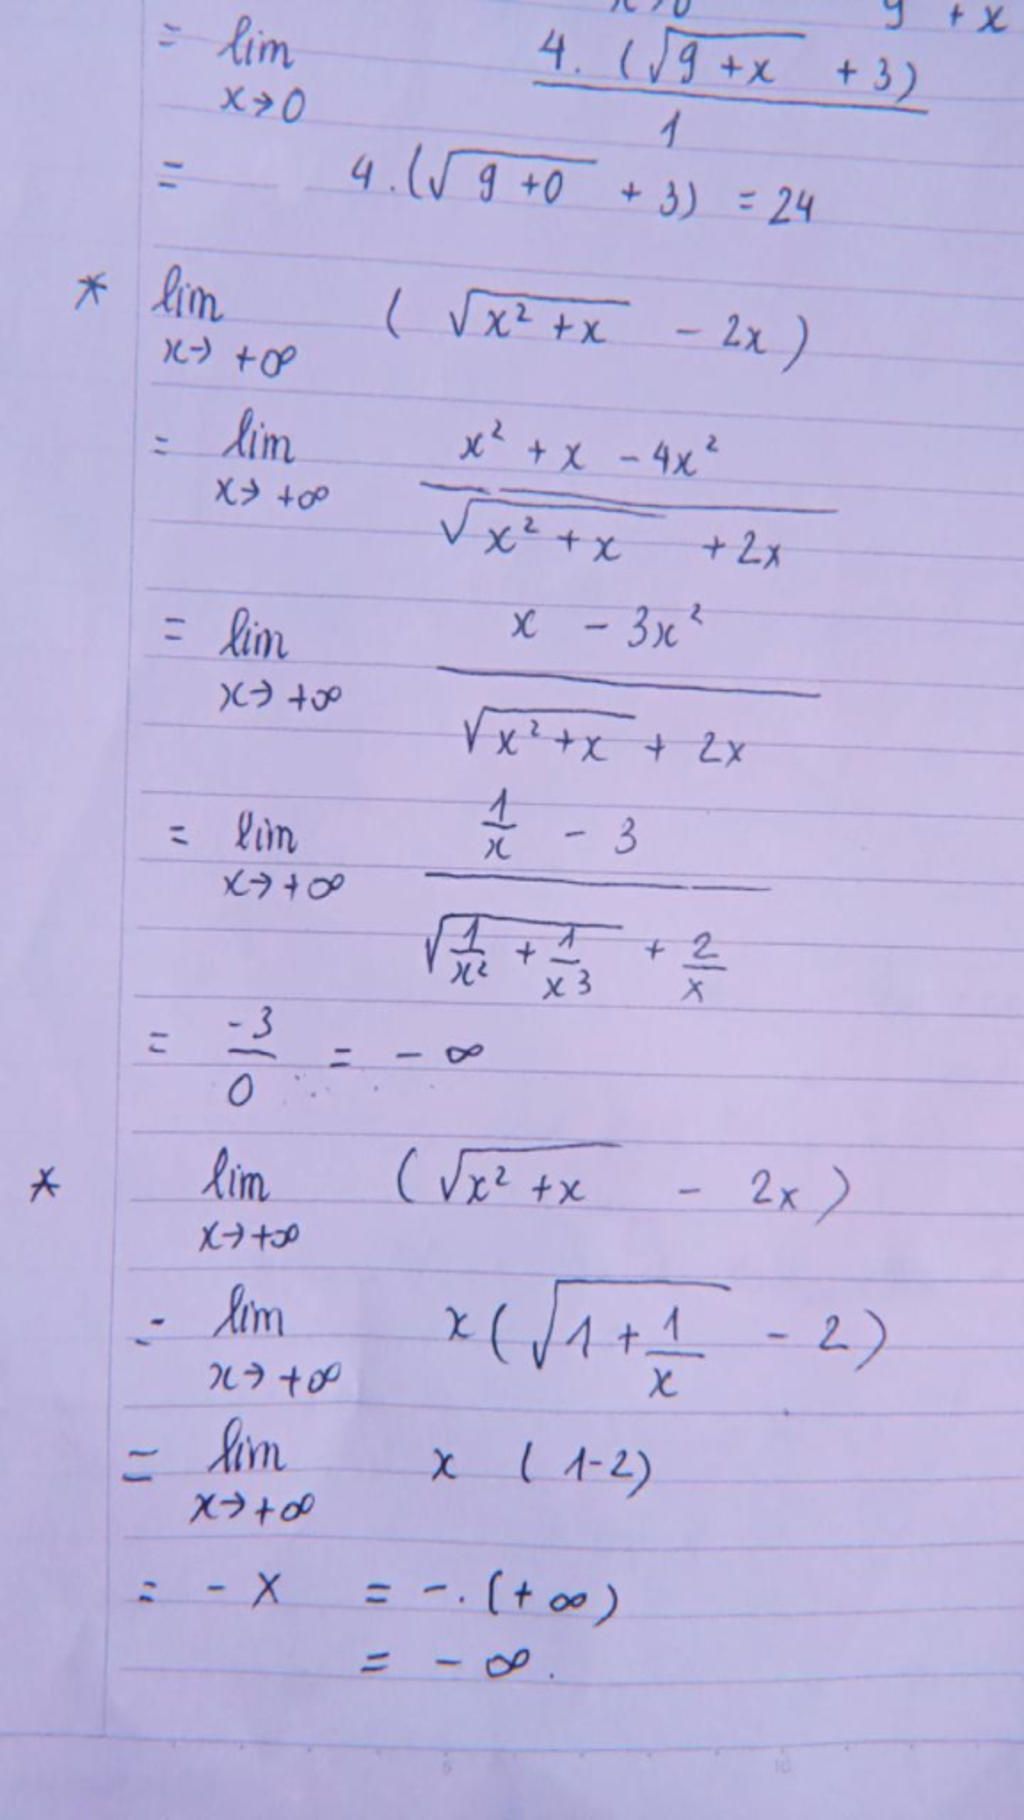 x→0 9 + x
= lim 4. (√(9+x) + 3)
x→0 1
= 4.(√(9+0) + 3) = 24
* lim ( √(x² + x) - 2x )
x→ +∞
= lim x² + x - 4x²
x→ +∞ √(x² + x) + 2x
= lim x - 3x²
x→ +∞ √(x² + x) + 2x
= lim 1/x - 3
x→ +∞ √(1/x² + 1/x³) + 2/x
= -3/0 = - ∞
* lim (√(x² + x) - 2x )
x→ +∞
= lim x (√(1 + 1/x) - 2)
x→ +∞
= lim x ( 1-2)
x→ +∞
= - x = -. (+ ∞)
= - ∞.